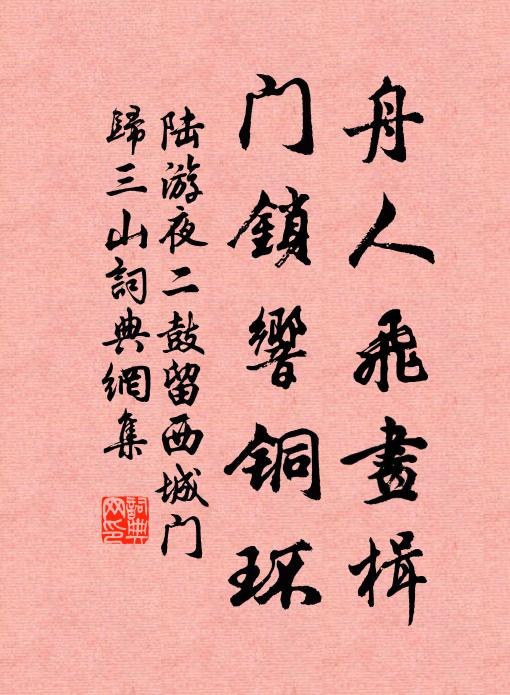 舟人飛畫楫
门鎖響铜环
陆游夜二鼓留西城门
歸三山詞典網集
詞典网印